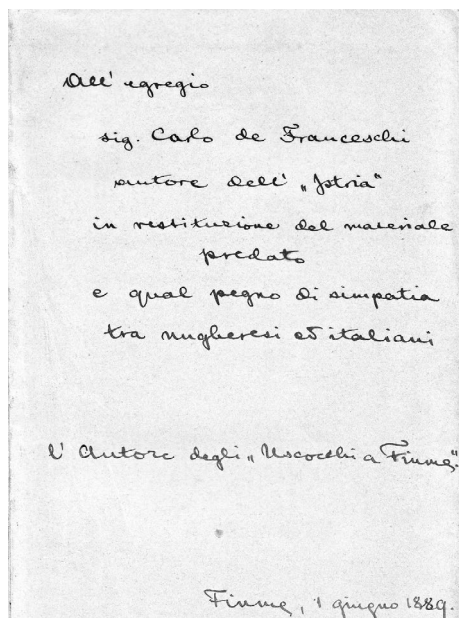 All' egregio
sig. Carlo de Franceschi
autore dell' „Istria"
in restituzione del materiale
predato
e qual pegno di simpatia
tra ungheresi ed italiani
l' Autore degli „Uscocchi a Fiume".
Fiume, 1 giugno 1889.